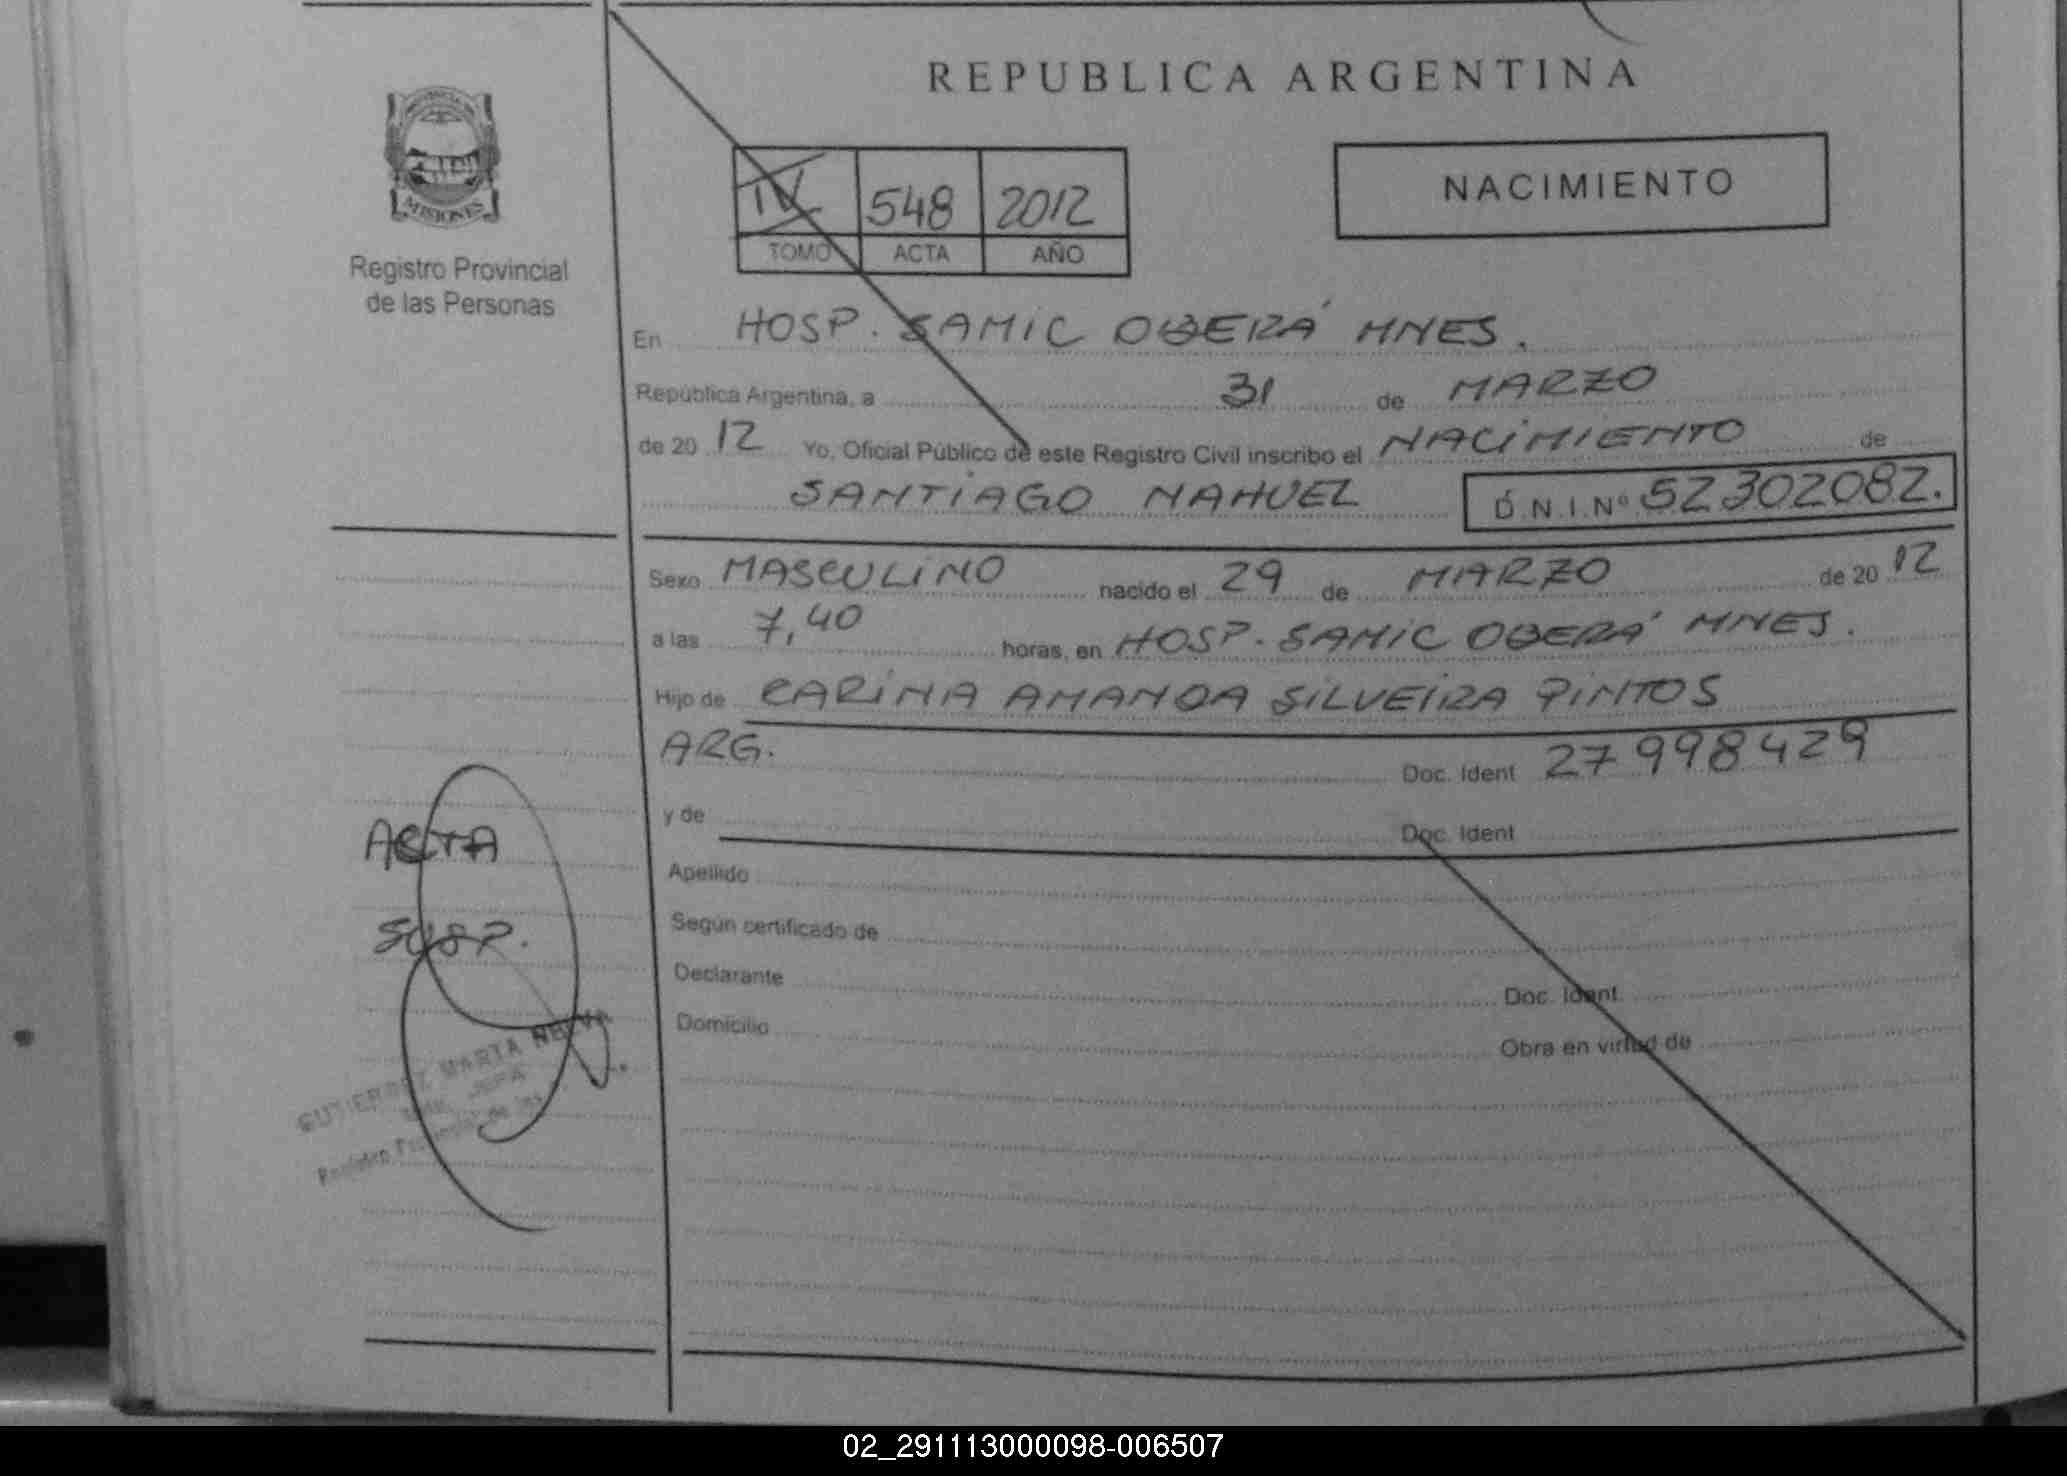 REPUBLICA ARGENTINA
MISIONES
Registro Provincial
de las Personas
NACIMIENTO
IV 548 2012
TOMO ACTA AÑO
En HOSP. SAMIC OBERÁ MNES.
República Argentina, a 31 de MARZO
de 20 12 Yo, Oficial Público de este Registro Civil inscribo el NACIMIENTO de
SANTIAGO NAHUEL D.N.I.Nº 52302082.
Sexo MASCULINO nacido el 29 de MARZO de 20 12
a las 7,40 horas, en HOSP. SAMIC OBERÁ MNES.
Hijo de CARINA AMANDA SILVEIRA PINTOS
ARG. Doc. Ident 27998429
y de Doc. Ident
Apellido
Según certificado de
Declarante Doc. Ident.
Domicilio Obra en virtud de
ACTA
SUSP.
GUTIERREZ MARTA NELVA
JEFA
02_291113000098-006507